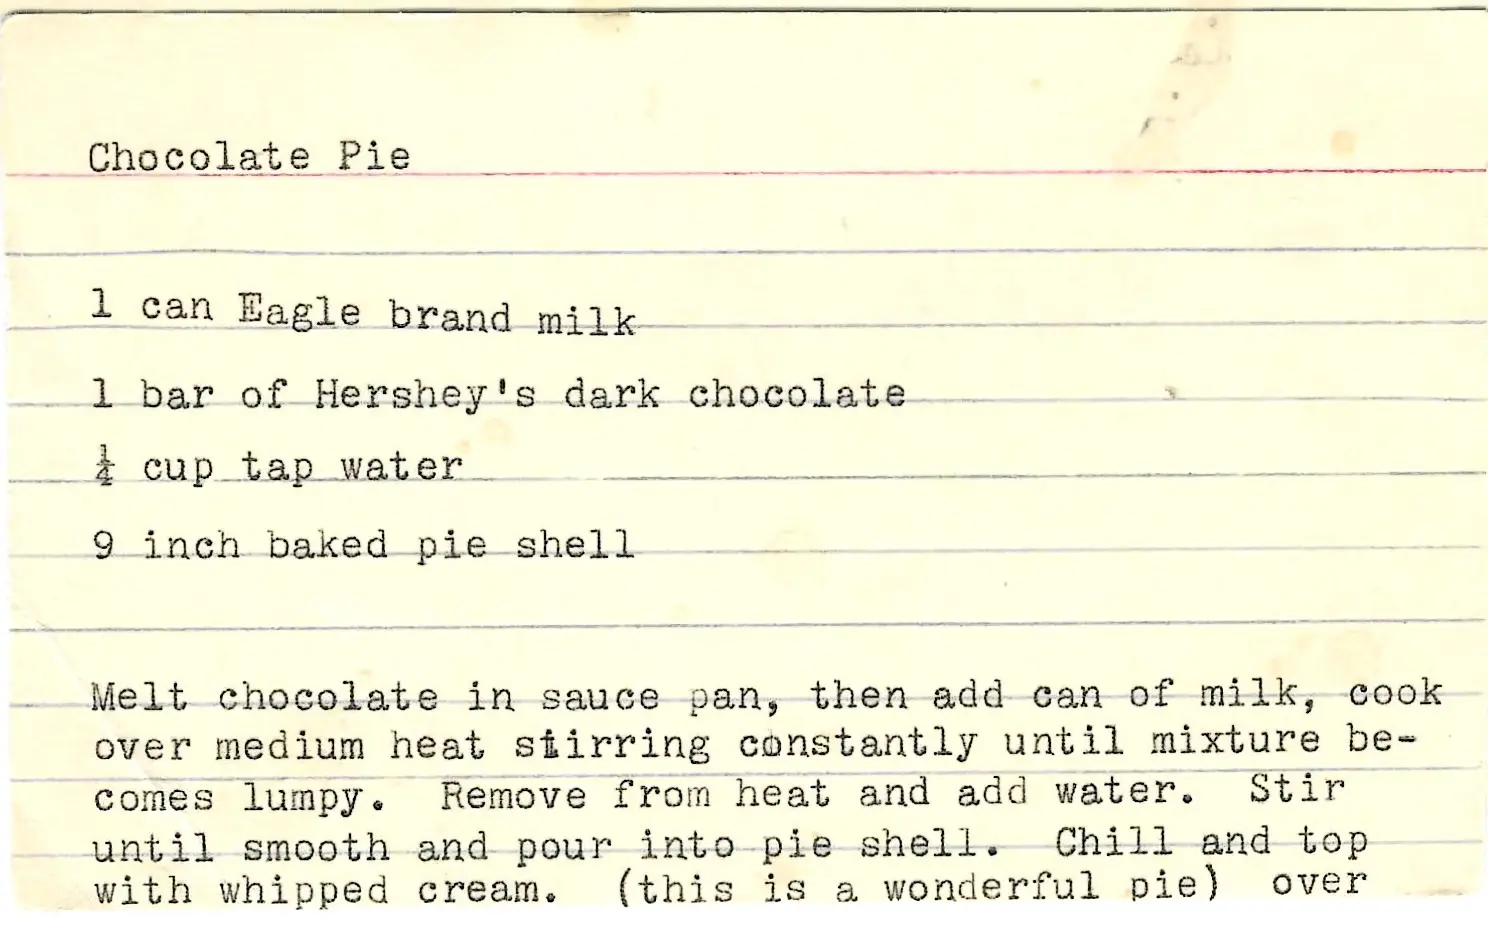 Chocolate Pie
1 can Eagle brand milk
1 bar of Hershey's dark chocolate
¼ cup tap water
9 inch baked pie shell
Melt chocolate in sauce pan, then add can of milk, cook
over medium heat stirring constantly until mixture be-
comes lumpy. Remove from heat and add water. Stir
until smooth and pour into pie shell. Chill and top
with whipped cream. (this is a wonderful pie) over